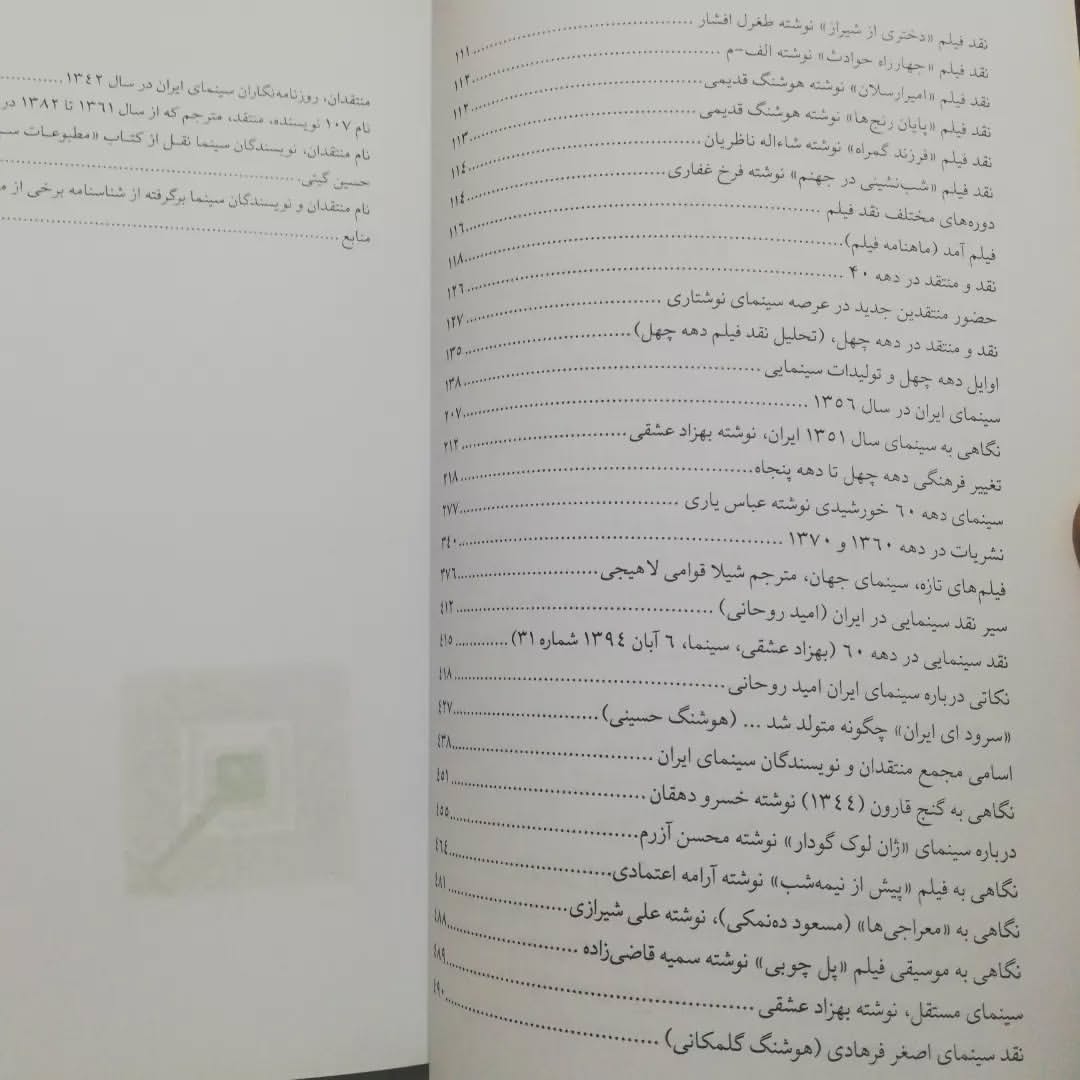 نقد فیلم «دختری از شیراز» نوشته طغرل افشار ........ ۱۱۱
نقد فیلم «چهارراه حوادث» نوشته الف-م ........ ۱۱۲
نقد فیلم «امیرارسلان» نوشته هوشنگ قدیمی ........ ۱۱۲
نقد فیلم «پایان رنج‌ها» نوشته هوشنگ قدیمی ........ ۱۱۳
نقد فیلم «فرزند گمراه» نوشته شاءاله ناظریان ........ ۱۱۴
نقد فیلم «شب‌نشینی در جهنم» نوشته فرخ غفاری ........ ۱۱۴
دوره‌های مختلف نقد فیلم ........ ۱۱۶
فیلم آمد (ماهنامه فیلم) ........ ۱۱۸
نقد و منتقد در دهه ۴۰ ........ ۱۲۶
حضور منتقدین جدید در عرصه سینمای نوشتاری ........ ۱۲۷
نقد و منتقد در دهه چهل، (تحلیل نقد فیلم دهه چهل) ........ ۱۳۵
اوایل دهه چهل و تولیدات سینمایی ........ ۱۳۸
سینمای ایران در سال ۱۳۵۶ ........ ۲۰۷
نگاهی به سینمای سال ۱۳۵۱ ایران، نوشته بهزاد عشقی ........ ۲۱۲
تغییر فرهنگی دهه چهل تا دهه پنجاه ........ ۲۱۸
سینمای دهه ۶۰ خورشیدی نوشته عباس یاری ........ ۲۷۷
نشریات در دهه ۱۳۶۰ و ۱۳۷۰ ........ ۳۴۰
فیلم‌های تازه، سینمای جهان، مترجم شیلا قوامی لاهیجی ........ ۳۷۶
سیر نقد سینمایی در ایران (امید روحانی) ........ ۴۱۲
نقد سینمایی در دهه ۶۰ (بهزاد عشقی، سینما، ۶ آبان ۱۳۹۴ شماره ۳۱) ........ ۴۱۵
نکاتی درباره سینمای ایران امید روحانی ........ ۴۱۸
«سرود ای ایران» چگونه متولد شد ... (هوشنگ حسینی) ........ ۴۲۷
اسامی مجمع منتقدان و نویسندگان سینمای ایران ........ ۴۳۸
نگاهی به گنج قارون (۱۳۴۴) نوشته خسرو دهقان ........ ۴۵۱
درباره سینمای «ژان لوک گودار» نوشته محسن آزرم ........ ۴۵۵
نگاهی به فیلم «پیش از نیمه‌شب» نوشته آرامه اعتمادی ........ ۴۶۴
نگاهی به «معراجی‌ها» (مسعود ده‌نمکی)، نوشته علی شیرازی ........ ۴۸۱
نگاهی به موسیقی فیلم «پل چوبی» نوشته سمیه قاضی‌زاده ........ ۴۸۸
سینمای مستقل، نوشته بهزاد عشقی ........ ۴۸۹
نقد سینمای اصغر فرهادی (هوشنگ گلمکانی) ........ ۴۹۰
منتقدان، روزنامه‌نگاران سینمای ایران در سال ۱۳۴۲ ........
نام ۱۰۷ نویسنده، منتقد، مترجم که از سال ۱۳۶۱ تا ۱۳۸۲ در
نام منتقدان، نویسندگان سینما نقل از کتاب «مطبوعات
حسین گیتی ........
نام منتقدان و نویسندگان سینما برگرفته از شناسنامه برخی از
منابع ........